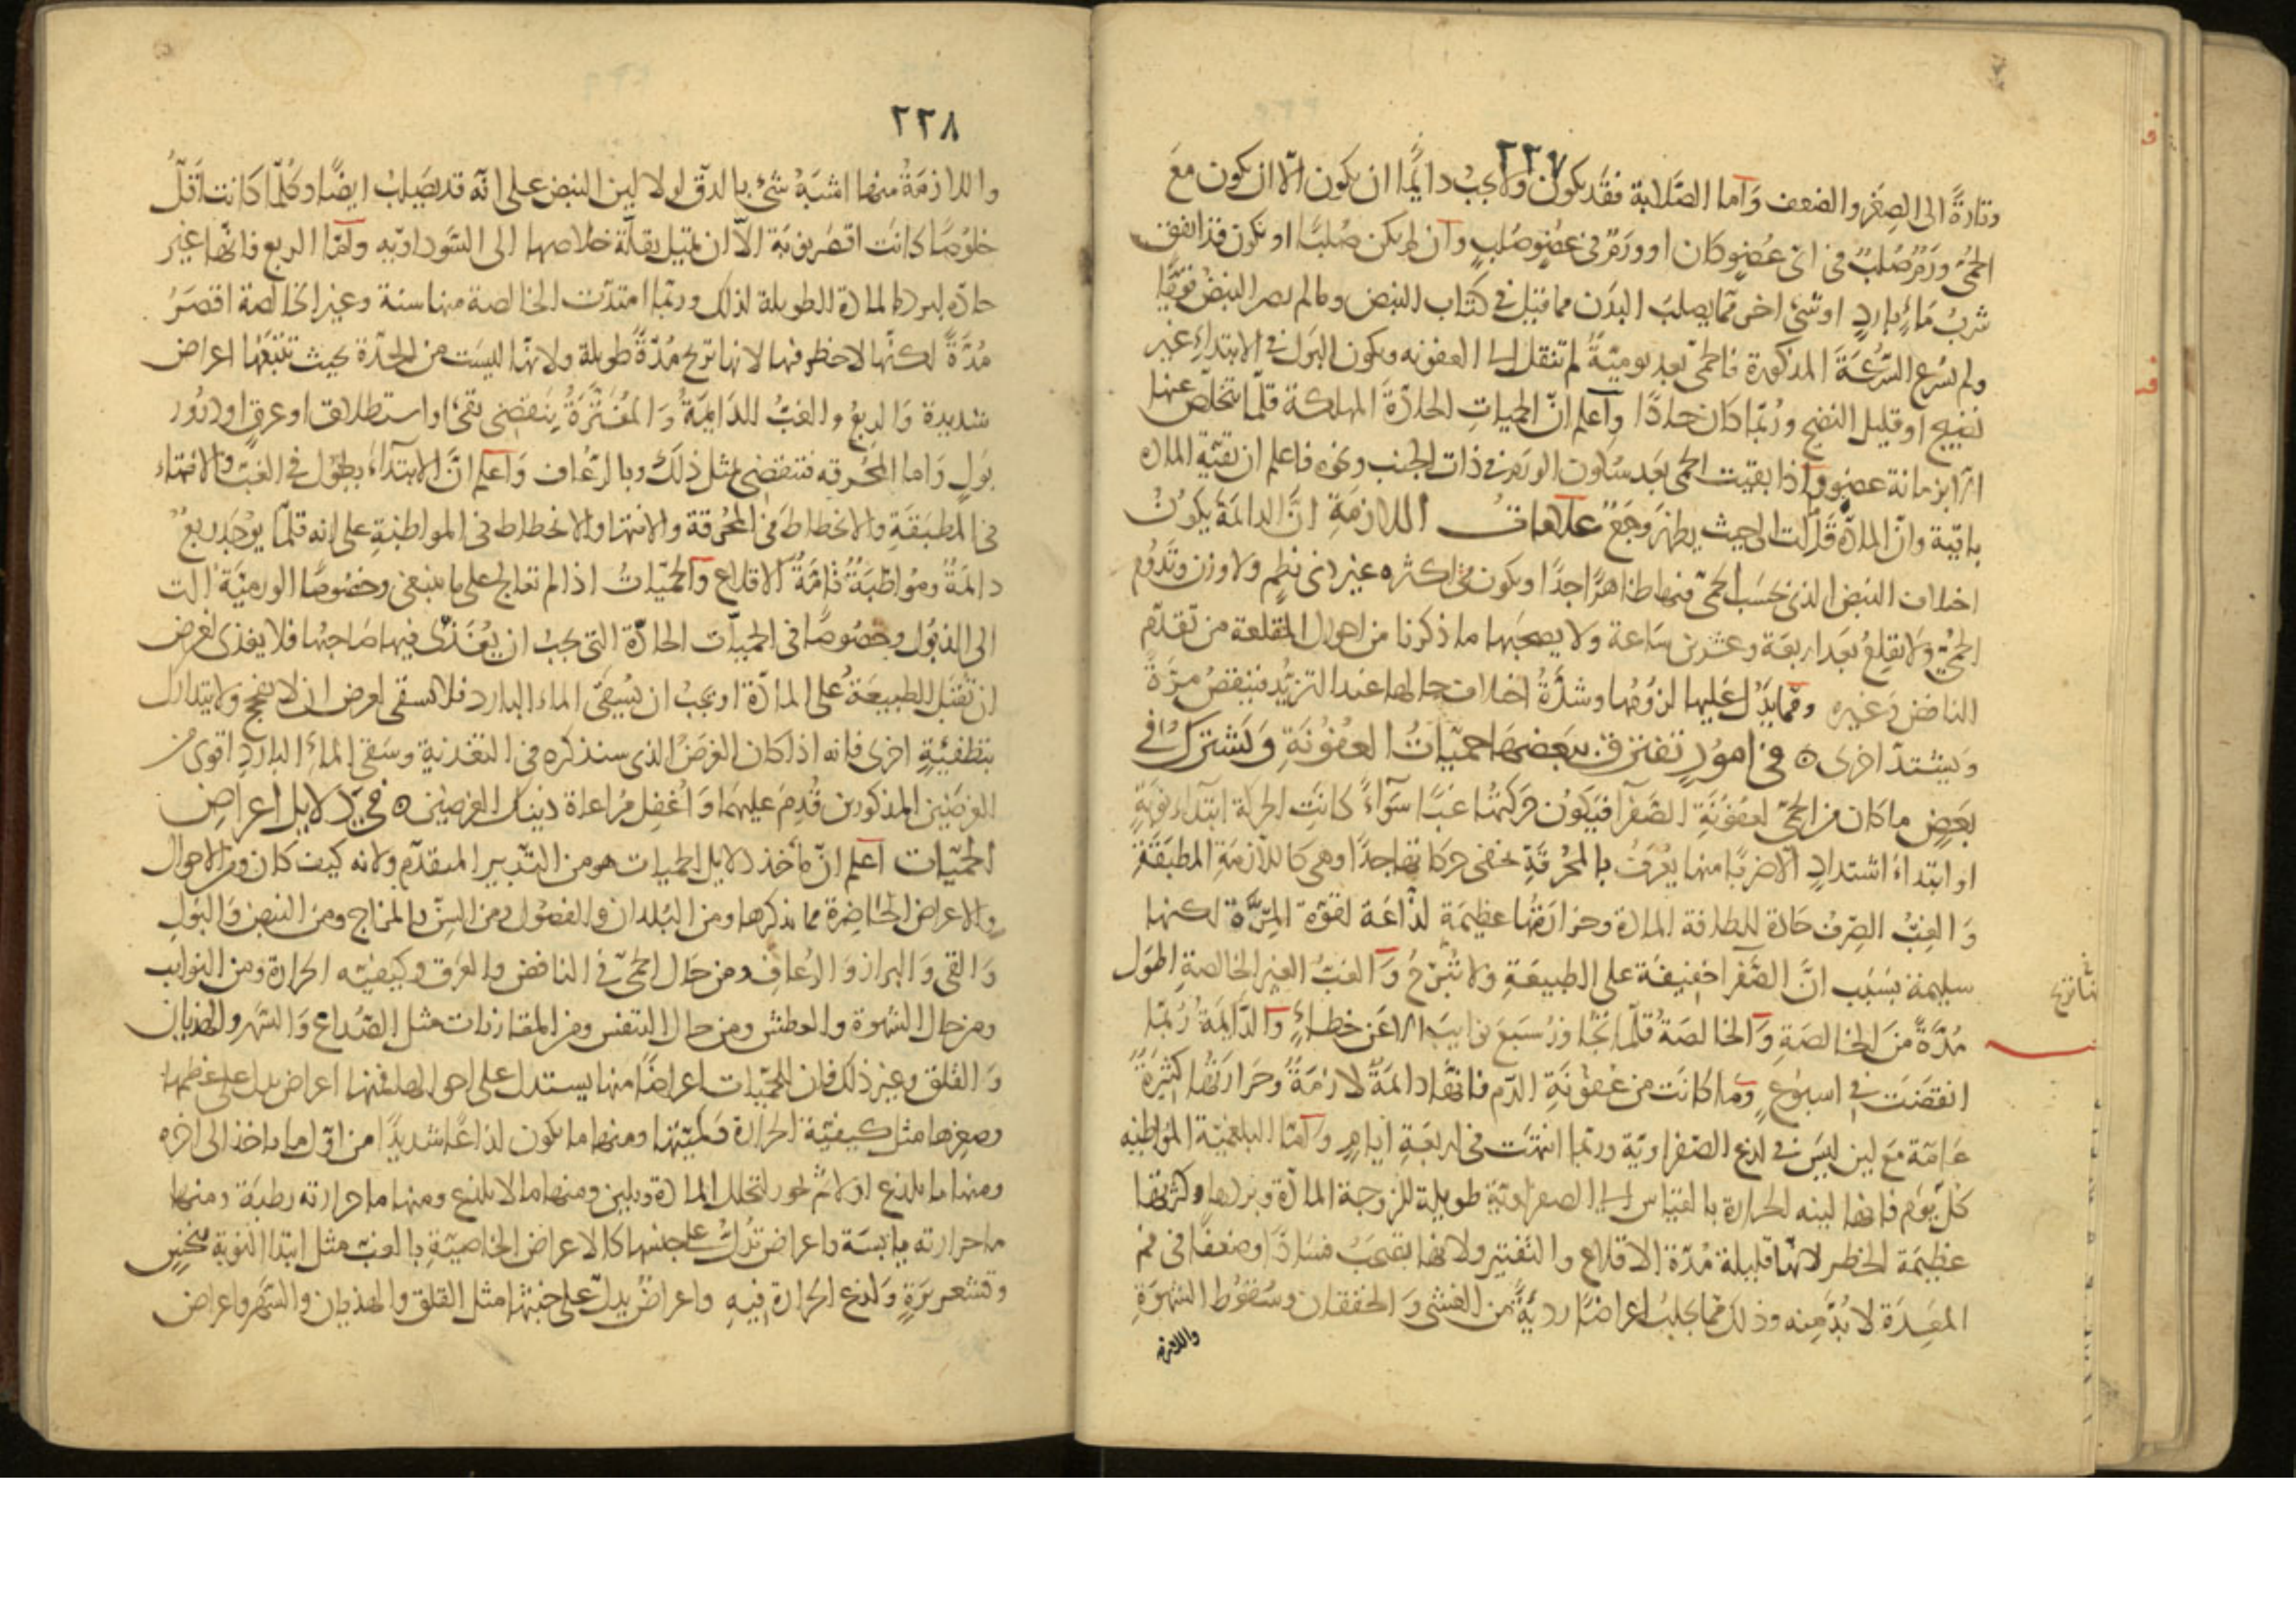 ٢٢٧
وتارةً الى الصِغَر والضعف وَاما الصَّلابة فقَد يكون وَلا يجبُ دايمًا ان يكون الّا ان يكون مَعَ
الحمّى وَرَمٌ صُلبٌ فى اىّ عُضوٍ كان او وَرَمٌ فى عضوٍ صُلبٍ وان لم يكن صُلبًا او يكون قد اتفق
شربُ مَاءٍ باردٍ او شىءٍ اخر ممّا يصلبُ البدَن مما قيل فى كتاب النبض وما لم يصر النبضُ قويًّا
ولم يسْرع السُّرعَةَ المذكورة فالحمّى بعد يوميّةٌ لم تنقل الى العفونه ويكون البَول فى الابتداءِ غير
نضيج او قليل النضج ورُبّما كان حادًا واَعلم انّ الحميات الحادّةَ المهلكة قلّما يتخلّص عنها
الّا بزمانة عضوٍ واذا بقيت الحمى بعد سكون الورم فى ذات الجنب ونحوه فاعلم ان بقيّة الماده
باقية وانّ المادّة قد مالت الى حيث يظهر وجَعٌ علاماتُ اللازمَةِ انّ الدايمَة يكونُ
اختلاف النبض الذى بحسَب الحمّى فيها ظاهرًا جدًا ويكون فى اكثره غير ذى نظمٍ ولا وزن وتَدُوم
الحمىّ ولا تقلعُ بَعَد اربعَة وعشرين سَاعة ولا يصحبها ما ذكرنا من احوال المقلعة من تقدّم
النافض وغيره ومَّما يدّل عَليها لزوُمها وشدّةُ اختلاف حالها عند التزيّد فينقصُ مرّةً
وَيشتدّ اخرى ۞ فى امورٍ تفترق ببَعضها حميّاتُ العفُونَةِ وَتَشترَكُ فى
بعَضٍ ما كان من الحمىّ لعفونَةِ الصّفرا فيَكوُن حركتهُا غبًّا سَواءً كانَتِ الحركة ابتدآء نوبةٍ
او ابتداءَ اشتدادٍ الّا ضربًا منها يعُرَفُ بالمحُرقَةِ يخفى حركاتها جدًا وهى كاللازمَةِ المطبقَة
وَ الغبّ الصِرفُ حَادة للطافة المادة وحرارَتُها عظيمَة لذّاعَة لقوّة المِرَّة لكنها
سليمة بسَبب انَّ الصَّفرا خفيفَة على الطبيعَةِ ولا تُبرّحُ وَالغبُّ الغير الخالصةِ اطوَل
مُدّةً مّنَ الخالصَةِ وَالخالصَةُ قلّما تجُاوزُ سَبعَ نوايبَ الّا عَن خطاءٍ وَالدّايمَةُ رُبّما
انقضَت فى اسبوُعٍ وَما كانَت من عفوُنَةِ الدّم فانّهَا دايمَةٌ لازمَةٌ وَحَرارَتهُا كثيرَةٌ
عَامّة مَع لين ليسَ فى لدغ الصّفراويّة وربّما انتهَت فى اربعَةِ ايامٍ وَامّا البلغميّة المواظبه
كلّ يوم فانها لينه الحرارة بالقياس الى الصفراويّة طويلة للزوجة المادّة وبردها وكثرتها
عظيمَة الخطر لانّها قليلة مُدّة الاقلاع والتّفتير ولانها تصحَبُ فسَادًا وضعفًا فى فم
المعِدَة لا بُدّ منه وذلك ممّا يجلبُ اعراضًا رديّةً من الغشى وَ الخفقان وسُقوُط الشهوَةِ
واللازمة
٢٢٨
واللازمَةُ منها اشبَهُ شئ بالدقّ لولا لين النبض على انّه قد يصَلبُ ايضًا وكلّما كانت اَقلَّ
خلوُصًا كانَت اقصَر نوبَة الّا ان تميل بقلّة خلاصها الى السَّوداويّه وامّا الربع فانّها غير
حادّه لبرد المادة الطويلة لذلك وربّما امتدّت الخالصة منها سنة وغير الخالصة اقصَرُ
مُدّةً لكنّها لا خطر فيها لانها تريح مُدّةً طويلة ولانّها ليسَت من الحدّة بحيث تتبَعُها اعراض
شديدة وَالربعُ والغبُّ الدّايمَةُ وَ المُفتَّرَةُ ينَقضى بقىءٍ او استطلاقٍ او عرقٍ او درُور
بَولٍ وَاما المحُرقه فتنقضى بمثل ذلَكَ وبالرّعُاف وَاعلم انَّ الابتداءَ يطوُل فى الغبّ والانتهاء
فى المطبَقَةِ والانحطاطَ فى المحُرقة والانتها والانحطاط فى المواظبَةِ على انه قلّما يوُجَد ربعٌ
دايمَةٌ ومُواظبَةٌ تامّةُ الاقلاع وَالحُميّاتُ اذا لم تعالج على ما ينبغى وخصُوصًا الورميّةُ الت
الى الذبُول وخصُوصًا فى الحميّات الحادّة التى يجبُ ان يُغَذّى فيها صَاحبُها فلا يغذى لغرض
ان تقُبل الطبيعَةُ على المادّة او يجبُ ان يُسقَى الماء البارد فلا يسقى لغرض ان لا تفجج ولا يتدارك
بتطفئيَةٍ اخرى فانه اذا كان الغرضُ الذى سنذكره فى التغذية وسَقى الماءِ الباردِ اقوى من
الغرضَين المذكورين قُدِمَ عليهما وَ اُغُفِل مُراعاة ذينك الغرضين ۞ فى دَلايل اعراض
الحميّات اَعلم انّ مأخذ دلايل الحميات هو من التّدبير المتقدّم ولانه كيف كان ومن الاحوال
والاعراض الحَاضِرة مما نذكرها ومن البُلدان والفصُول ومن السِنّ والمزاج ومن النبض وَ البَولِ
وَ القى وَ البراز وَ الرُعافِ ومن حَال الحمّىِ فى النافض والعَرَق وكيفيّته الحرارة ومن النوايب
ومن حال الشهوة والعطش ومن حال التنفس ومن المقارنات مثل الصُداعِ وَ السّهَر والهذيان
وَ القلق وغير ذلك فان للحمّيات اعراضًا منها يستدل على احوالها فمنها اعراض يدل على عظمها
وصغرها مثل كيفيّة الحرَارة وكميّتها ومنها ما يكون لذاعًا شديدًا من اوّل ما ياخذ الى اخره
ومنها ما يلدغ اولًا ثم يخور لتحلل المادة ويلين ومنها ما لا يلدغ ومنها ما حرارته رطبَة ومنها
ما حرارته يابسَة واعراض تدُلّ على جنسها كالاعراض الخاصيّةِ بالغب مثل ابتدا النوبة بنخسٍ
وقشعريرَةٍ وَلدغ الحرَارة فيهِ واعراضٌ يدلّ على خبثها مثل القلق والهذيان والسّهَر واعراض